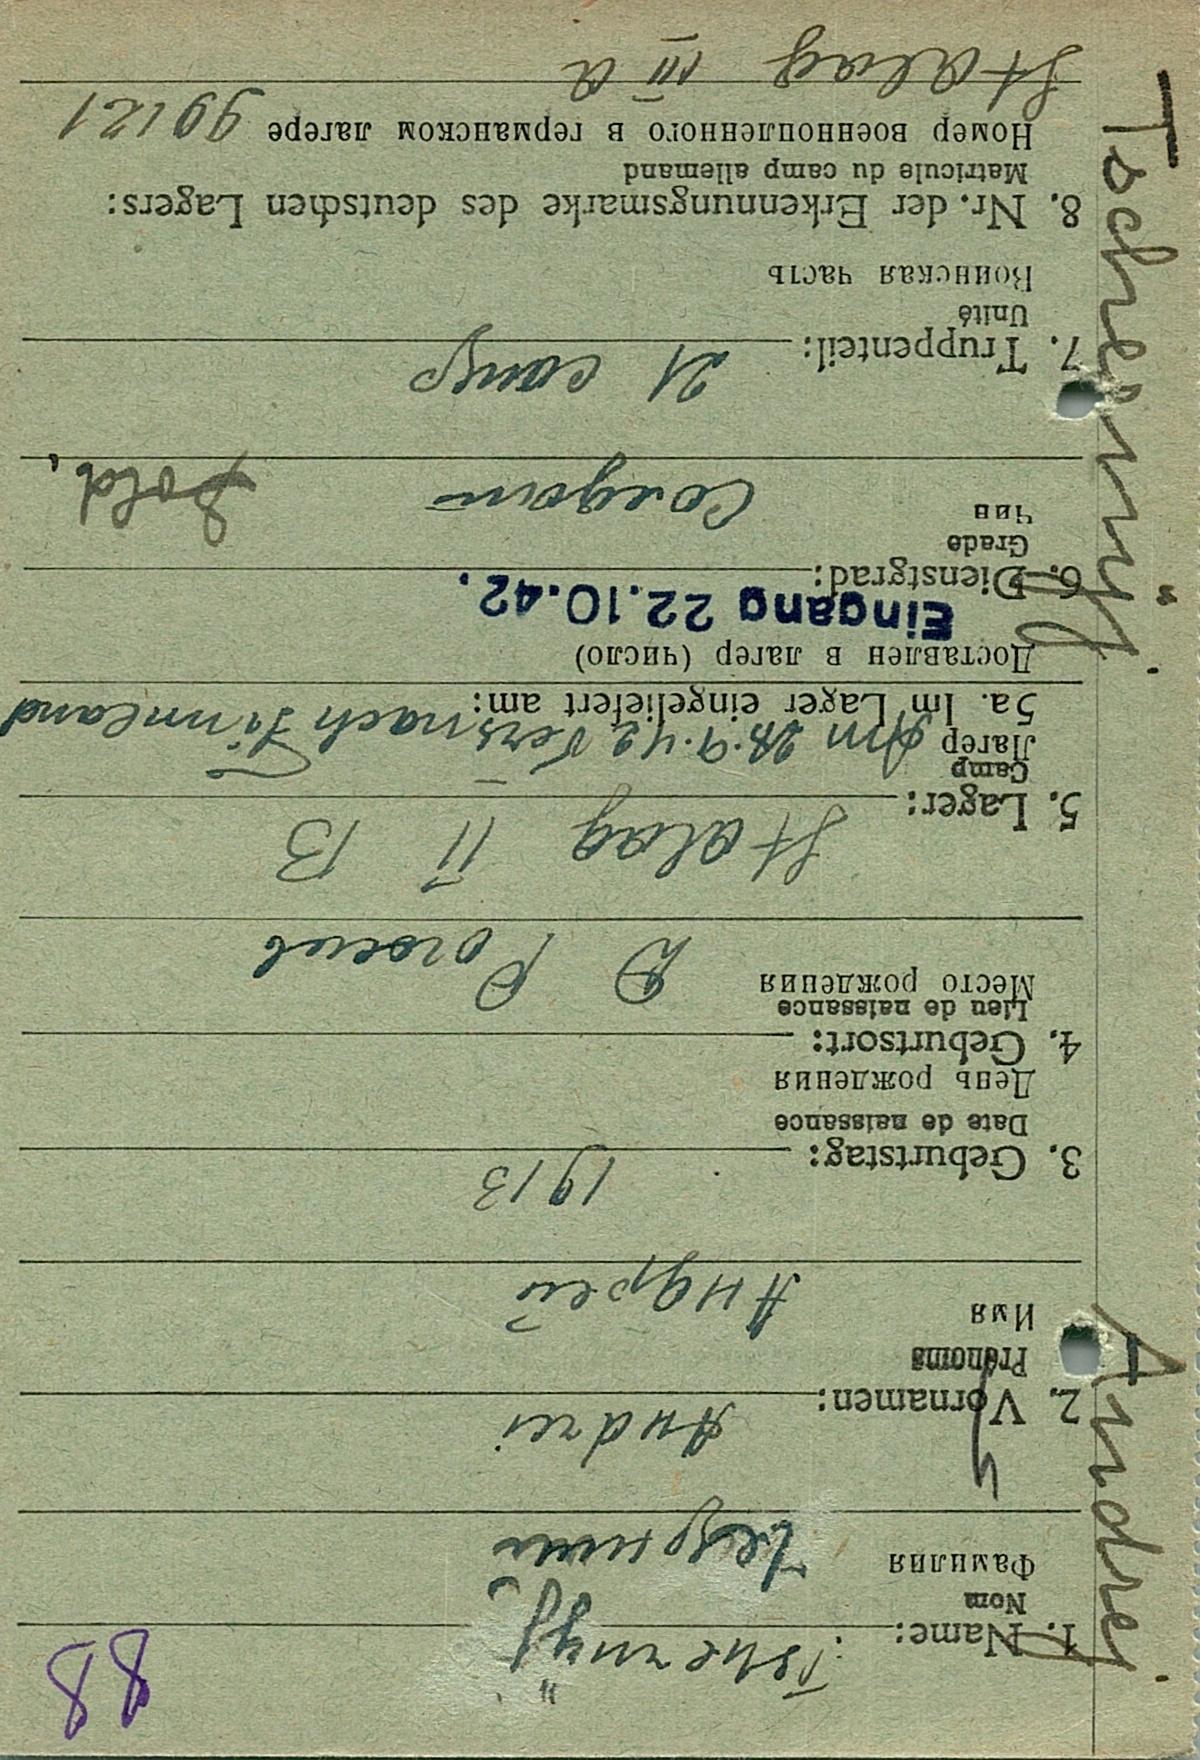 88
Tschernyj Andrej
1. Name:
Nom
Фамилия
2. Vornamen: Andrei
Prénoms
Имя Андрей
3. Geburtstag: 1913
Date de naissance
День рождения
4. Geburtsort:
Lieu de naissance
Место рождения Д
5. Lager: Stalag II B
Camp
Лагер Am 28.9.42 Vers. nach Finnland
5a. Im Lager eingeliefert am:
Доставлен в лагер (число)
Eingang 22.10.42.
6. Dienstgrad:
Grade
Чин Солдат Sold.
7. Truppenteil: 21
Unité
Воинская часть
8. Nr. der Erkennungsmarke des deutschen Lagers:
Matricule du camp allemand
Номер военнопленного в германском лагере 99121
Stalag III a